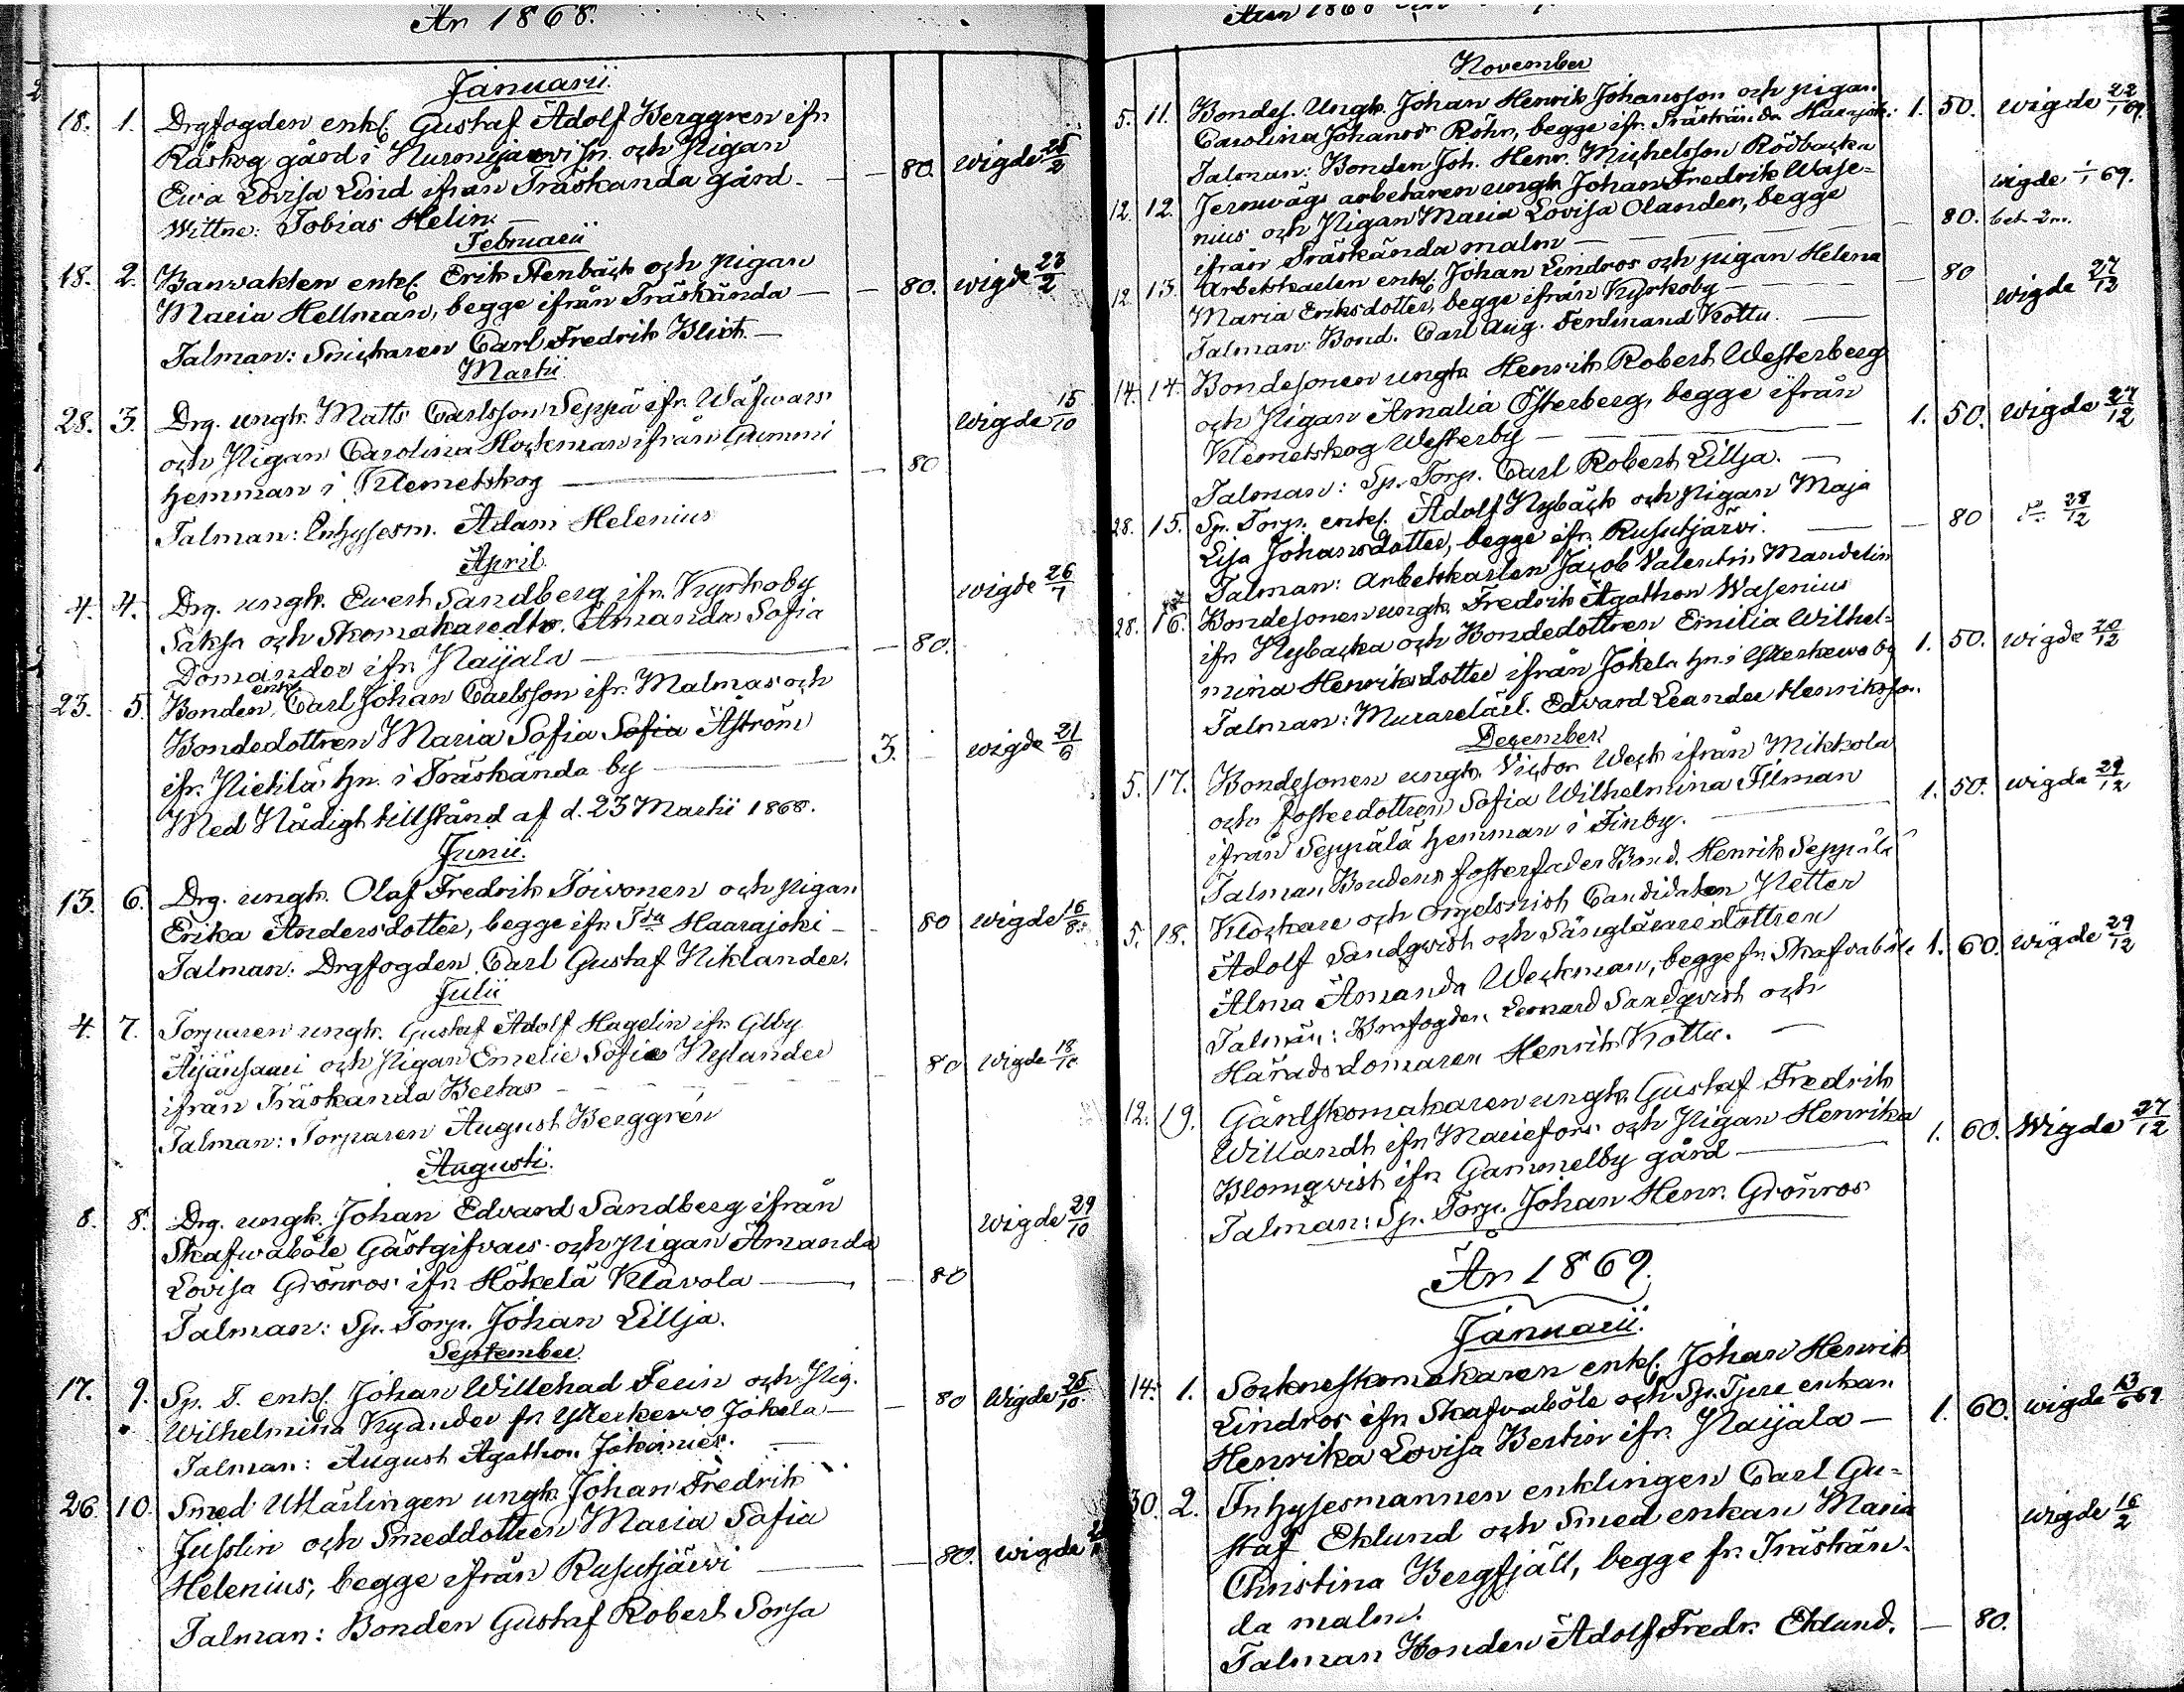 År 1868.
Januarii.
18. 1. Drgfogden enkl. Gustaf Adolf Berggren ifn
Råskog gård i Nurmijärvi sn. och Pigan
Ewa Lovisa Lind ifrån Träskanda gård. — — 80. wigde 25/2
Wittne: Tobias Helin. —
Februarii
18. 2. Banvakten enkl. Erik Stenbäck och pigan
Maria Hellman, begge ifrån Träskända — — 80. wigde 23/2
Talman: Snickaren Carl Fredrik Blick. —
Martii
28. 3. Drg. ungk. Matts Carlsson Seppä ifr. Wäfwars wigde 15/10
och Pigan Carolina Hockman ifrån Gummi
hemman i Klemetskog — — 80
Talman: Inhysesm. Adam Helenius
April
4. 4. Drg. ungk. Ewert Sandberg ifn. Kyrkoby wigde 26/7
Saksa och Skomakaredtr. Amanda Sofia
Domander ifn Paijala — — 80.
23. 5. Bonden enkl. Carl Johan Carlsson ifr. Malmas och
Bondedottren Maria Sofia Sofia Åström
ifr. Pietilä hn. i Träskända by — 3. — wigde 21/6
Med Nådigt tillstånd af d. 23 Martii 1868.
Junii.
13. 6. Drg. ungk. Olaf Fredrik Toivonen och pigan
Erika Andersdotter, begge ifn Tda Haarajoki — - 80 wigde 16/8
Talman: Drgfogden Carl Gustaf Niklander.
Julii
4. 7. Torparen ungk. Gustaf Adolf Hagelin ifr. Glby
Äijänsaari och Pigan Emelie Sofia Nylander
ifrån Träskanda Bertas — 80 wigde 18/10
Talman: Torparen August Berggrén
Augusti.
8. 8. Drg. ungk. Johan Edvard Sandberg ifrån wigde 29/10
Skafwaböle Gästgifvars och pigan Amanda
Lovisa Grönros ifn Hökelä Klavola — — 80
Talman: Sp. Torp. Johan Lillja.
September.
17. 9. Sp. T. enkl. Johan Willehad Feiin och Pig.
Wilhelmina Kyander fr Ytterkerwo Jokela — — 80 Wigde 25/10
Talman: August Agathon Johannies. —
26 10. Smed Utlärlingen ungk. Johan Fredrik
Jusslin och Smeddottren Maria Sofia
Helenius, begge ifrån Rusutjärvi — — 80. wigde
Talman: Bonden Gustaf Robert Sorsa
November
5. 11. Bondes. Ungk. Johan Henrik Johansson och pigan
Carolina Johansdr Röhr, begge ifr. Träskända Haarjoki. 1. 50. wigde 22/1 69.
Talman: Bonden Joh. Henr. Michelsson Rödbacka
12. 12. Jernvägs arbetaren ungk Johan Fredrik Wase-
nius och Pigan Maria Lovisa Olander, begge wigde 1/1 69.
ifrån Träskända malm — — 80.
12. 13. Arbetskarlen enkl. Johan Lindros och pigan Helena
Maria Eriksdotter, begge ifrån Kyrkoby — — 80 wigde 27/12
Talman: Bond. Carl Aug. Ferdinand Kottu. —
14. 14. Bondesonen ungk. Henrik Robert Westerberg
och Pigan Amalia Österberg, begge ifrån
Klemetskog Westerby — 1. 50. Wigde 27/12
Talman: Sp. Torp. Carl Robert Lillja. —
28. 15. Sp. Torp. enkl. Adolf Nybäck och Pigan Maja
Lisa Johansdotter, begge ifr. Rusutjärvi. — — 80 28/12
Talman: Arbetskarlen Jacob Valentin Mandelin
28. 16. Bondesonen ungk. Fredrik Agathon Wasenius
ifn Nybacka och Bondedottren Emilia Wilhel-
mina Henriksdotter ifrån Jokela hn. i Ytterkerwo by 1. 50. wigde 20/12
Talman: Murarelärl. Edvard Leander Henriksson.
December
5. 17. Bondesonen ungk. Victor Weck ifrån Mikkola
och fosterdottren Sofia Wilhelmina Filman
ifrån Seppälä hemman i Finby. — 1. 50. wigde 29/12
Talman Brudens fosterfader Bond. Henrik Seppälä
5. 18. Klockare och Orgelnist Candidaten Petter
Adolf Sandqvist och Sånglärare dottren
Alma Amanda Weckman, begge fr. Skafvaböle 1. 60. wigde 29/12
Talmän: Krfogden Leonard Sandqvist och
Häradsdomaren Henrik Kottu. —
12. 19. Gårdskomakaren ungk. Gustaf Fredrik
Willandt ifn Mariefors och Pigan Henrika
Blomqvist ifn Gammelby gård — 1. 60. Wigde 27/12
Talman: Sp. Torp. Johan Henr. Grönros
År 1869.
Januarii.
14. 1. Sockneskomakaren enkl. Johan Henrik
Lindros ifn Skafvaböle och Sp. Tjre enkan
Henrika Lovisa Bertin ifr. Paijala — 1. 60. wigde 13/6 69
30. 2. Inhysesmannen enklingen Carl Gu-
staf Eklund och Smed enkan Maria wigde 16/2
Christina Bergfjäll, begge fr. Träskän-
da malm.
Talman Bonden Adolf Fredr. Eklund. — 80.